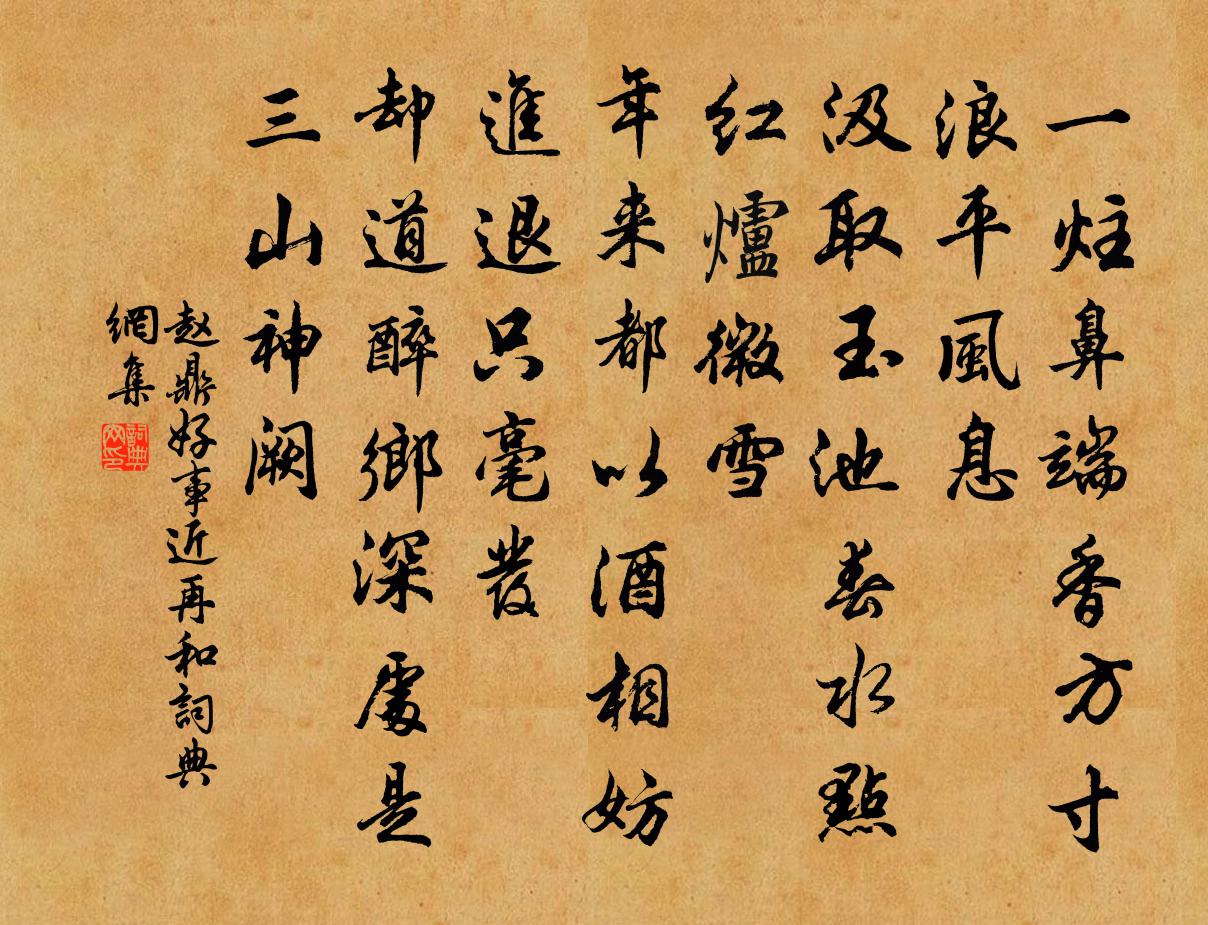 一炷鼻端香方寸
浪平風息
汲取玉池春水點
紅爐微雪
年来都以酒相妨
進退只毫發
却道醉鄉深處是
三山神闕
赵鼎好事近再和詞典
網集
詞典网印